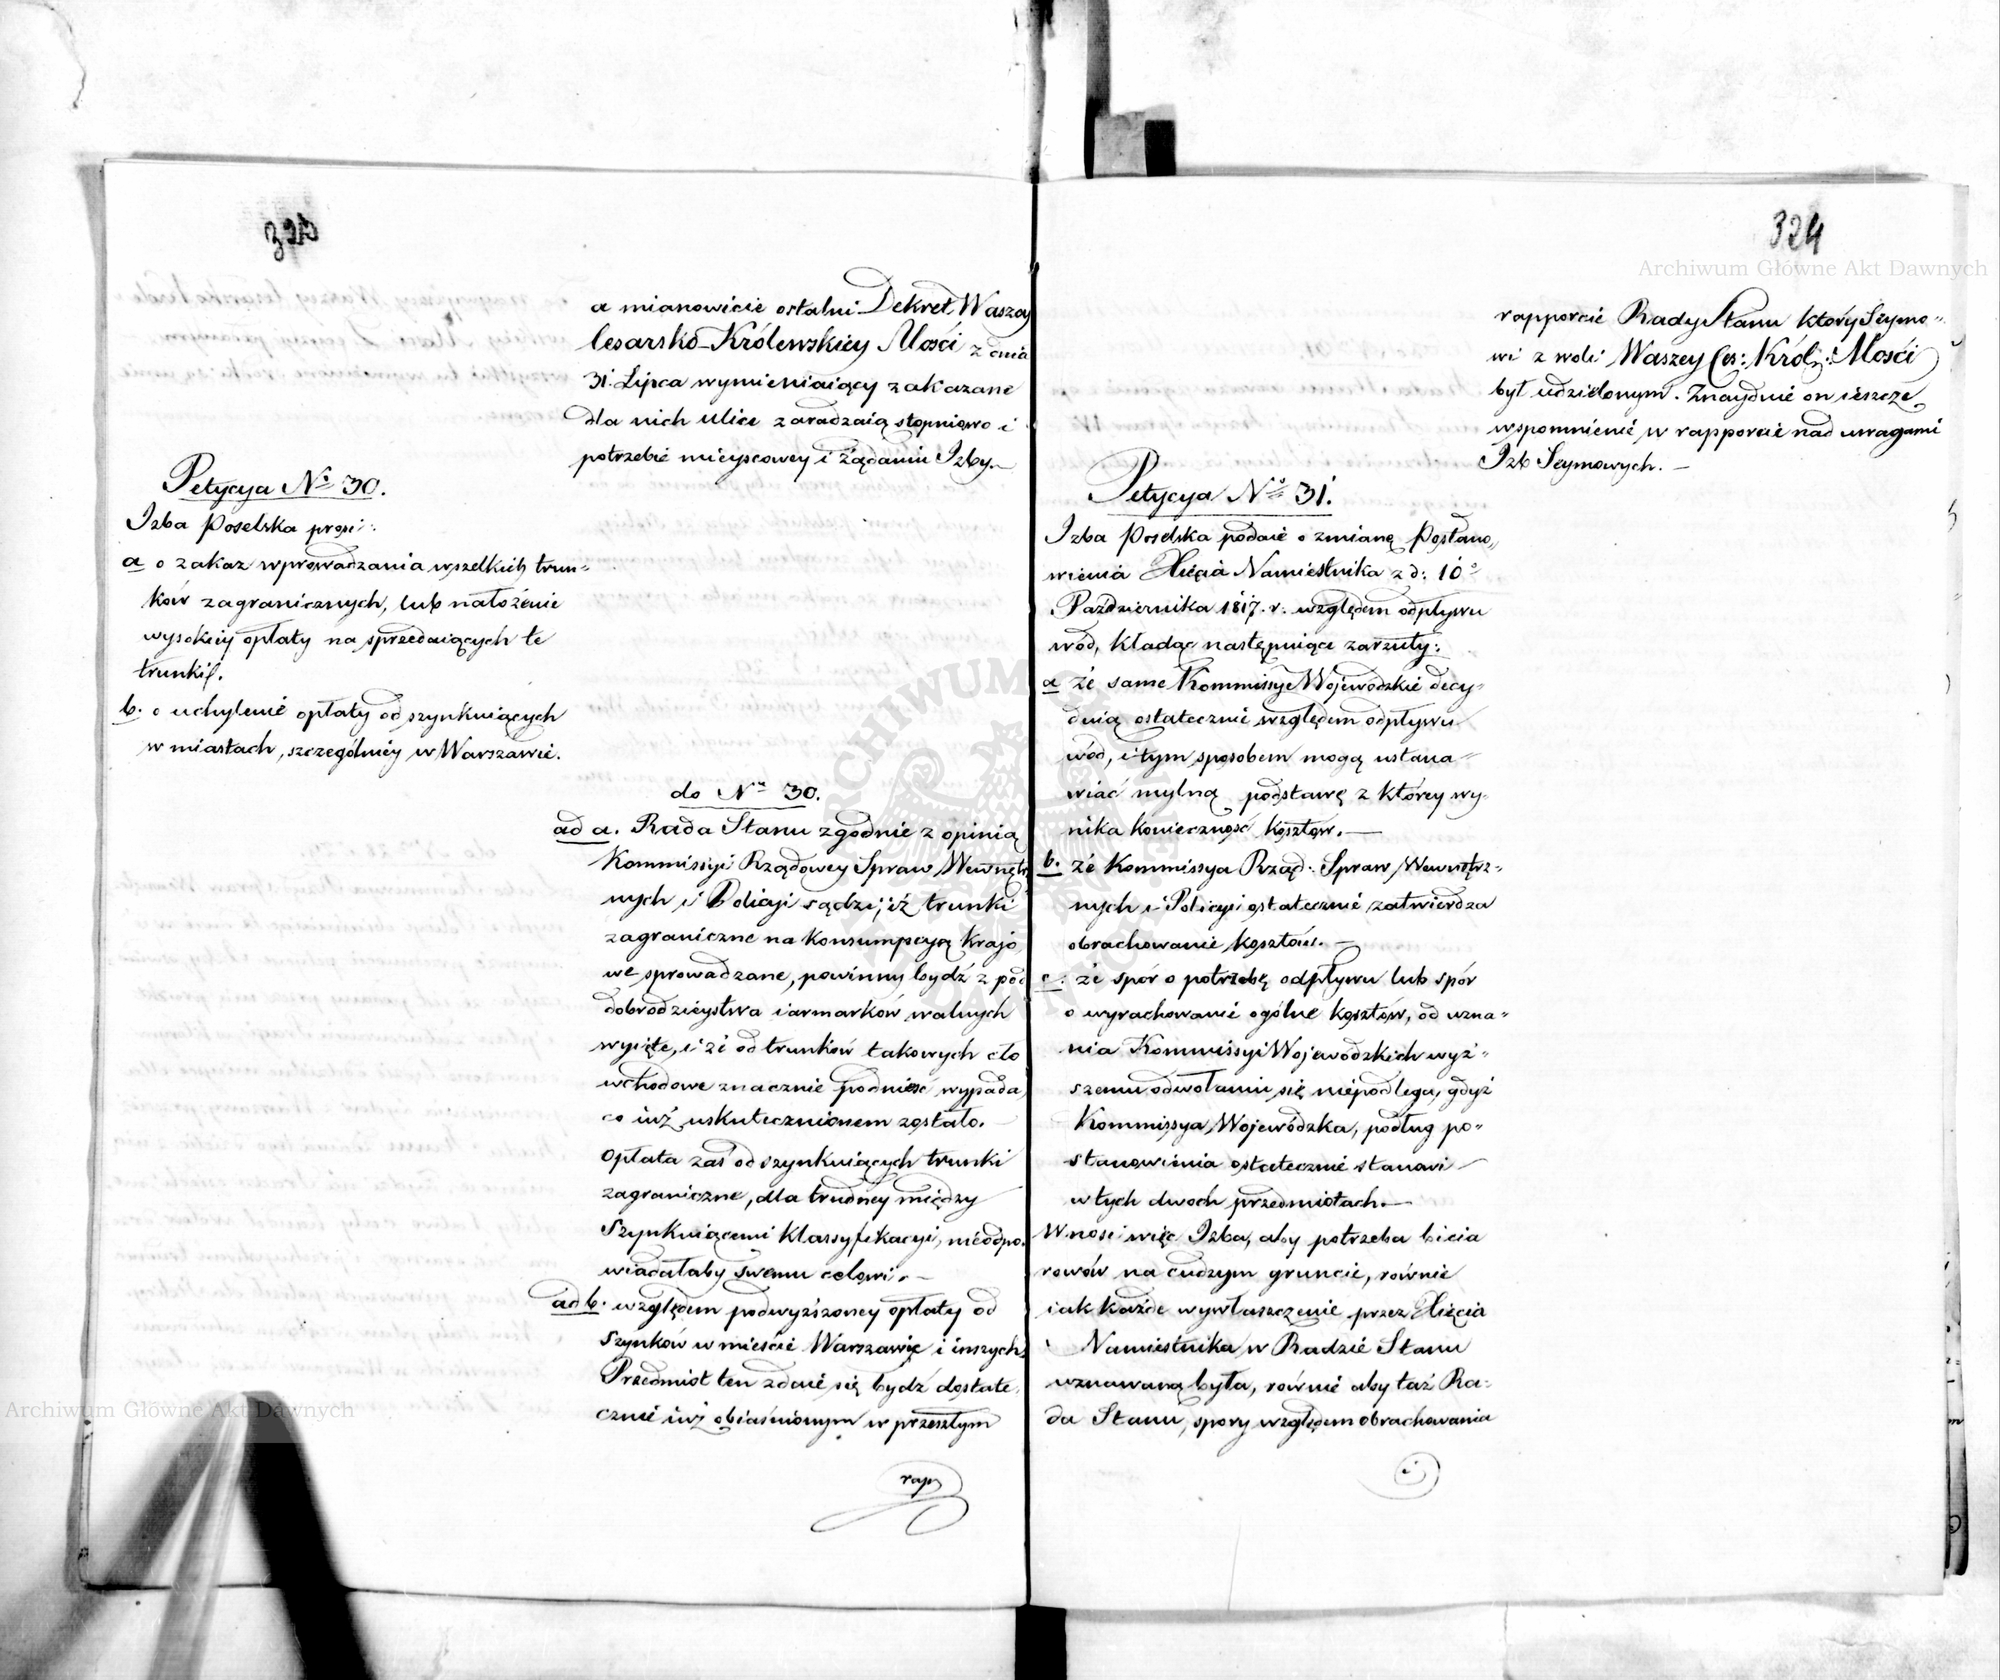 a mianowicie ostatni Dekret Waszey
Cesarsko-Królewskiey Mości z dnia
31. Lipca wymieniaiący zakazane
dla nich ulice zaradzaią stopniowo i
potrzebie mieyscowey i żądaniu Izby.—
Petycya No 30.
Izba Poselska prosi:
a o zakaz wprowadzania wszelkich trun-
ków zagranicznych, lub nałożenie
wysokiey opłaty na sprzedaiących te
trunki.
b. o uchylenie opłaty od szynkuiących
w miastach, szczególniey w Warszawie.
do Nru 30.
ad a. Rada Stanu zgodnie z opinią
Kommissyi Rządowey Spraw Wewnętrz
nych i Policyi sądzi, iż trunki
zagraniczne na konsumpcyą krajo
we sprowadzane, powinny bydź z pod
dobrodzieystwa iarmarków walnych
wyięte, i że od trunków takowych cło
wchodowe znacznie podnieść wypada
co iuż uskutecznionem zostało.
Opłata zaś od szynkuiących trunki
zagraniczne, dla trudney między
Szynkuiącemi klassyfikacyi, nieodpo-
wiadałaby swemu celowi.—
ad b. względem podwyższoney opłaty od
szynków w mieście Warszawie i inszych,
Przedmiot ten zdaie się bydź dostate-
cznie iuż obiaśnionym w przeszłym
rap
324
rapporcie Rady Stanu który Seymo-
wi z woli Waszey Ces: Król: Mości
był udzielonym. Znaydzie on ieszcze
wspomnienie w rapporcie nad uwagami
Izb Seymowych.—
Petycya No 31.
Izba Poselska podaie o zmianę Postano-
wienia Xięcia Namiestnika z d: 10o
Października 1817. r. względem odpływu
wód, kładąc następuiące zarzuty:
a że same Kommissye Woiewodzkie decy-
duią ostatecznie względem odpływu
wód, i tym sposobem mogą ustana-
wiać mylną podstawę z którey wy-
nika konieczność kosztów.—
b. że Kommissya Rząd: Spraw Wewnętrz-
nych i Policyi ostatecznie zatwierdza
obrachowanie kosztów.—
c. że spór o potrzebę odpływu lub spór
o wyrachowanie ogólne kosztów, od uzna-
nia Kommissyi Wojewodzkich wyż-
szemu odwołaniu się niepodlega, gdyż
Kommissya Wojewódzka, podług po-
stanowienia ostatecznie stanowi
w tych dwóch przedmiotach.—
Wnosi więc Izba, aby potrzeba bicia
rowów na cudzym gruncie, równie
iak każde wywłaszczenie przez Xięcia
Namiestnika w Radzie Stanu
uznawaną była, równie aby taż Ra-
da Stanu, spory względem obrachowania
i
Archiwum Główne Akt Dawnych
Archiwum Główne Akt Dawnych